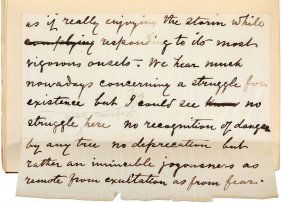 as if really enjoying the storm while
complying respond g to its most
vigorous onsets - We hear much
nowadays concerning a struggle for
existence but I could see no
struggle here no recognition of danger
by any tree no deprecation but
rather an invincible joyousness as
remote from exultation as from fear.